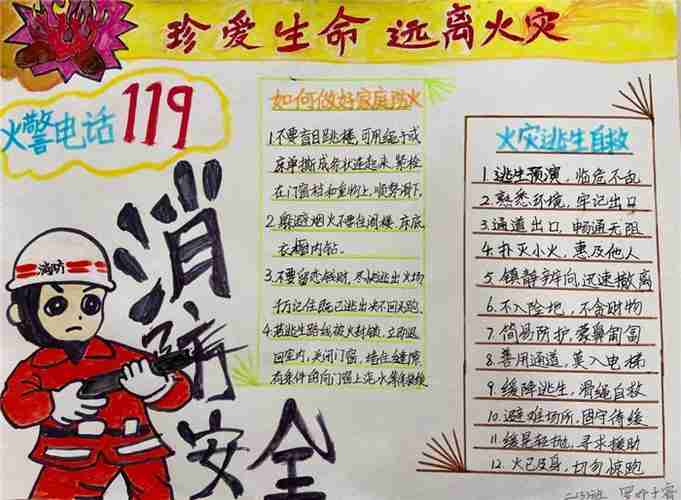 珍爱生命 远离火灾
火警电话119
消防
消防安全
如何做好家庭防火
1.不要盲目跳楼,可用绳子或
床单撕成条状连起来,紧栓
在门窗档和重物上,顺势滑下.
2.躲避烟火不要往阁楼、床底
衣橱内钻.
3.不要留恋钱财,尽快逃出火场
千万记住既已逃出决不回不跑.
4.若逃生路线被火封锁,立即退
回室内,关闭门窗,堵住缝隙
有条件的向门窗上浇水等待救援
火灾逃生自救
1.逃生预演,临危不乱
2.熟悉环境,牢记出口
3.通道出口,畅通无阻
4.扑灭小火,惠及他人
5.镇静辨向,迅速撤离
6.不入险地,不贪财物
7.简易防护,蒙鼻匍匐
8.善用通道,莫入电梯
9.缓降逃生,滑绳自救
10.避难场所,固守待援
11.缓晃轻抛,寻求援助
12.火已及身,切勿惊跑